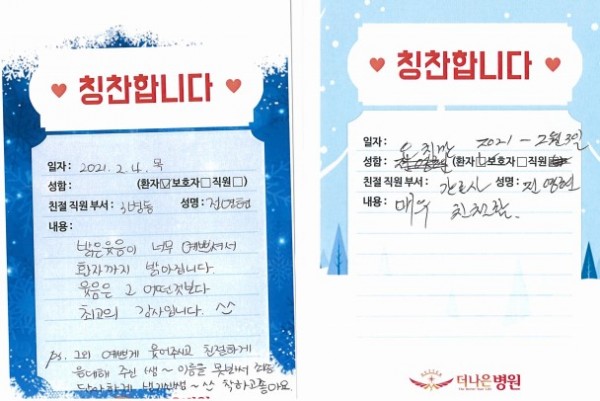 칭찬합니다
일자: 2021. 2. 4. 목
성함: (환자☑보호자□직원□)
친절 직원 부서: 3병동 성명:
내용:
밝은 웃음이 너무 예쁘셔서
환자까지 밝아집니다.
웃음은 그 어떤것보다
최고의 감사입니다. ^^
ps. 그외 예쁘게 웃어주시고 친절하게
응대해 주신 쌤~ 이름을 못봐서
착하고 좋아요
칭찬합니다
일자: 2021 - 2월 3일
성함: (환자□보호자□직원
친절 직원 부서: 간호사 성명: 진영현
내용: 매우 친절함.
더나은병원